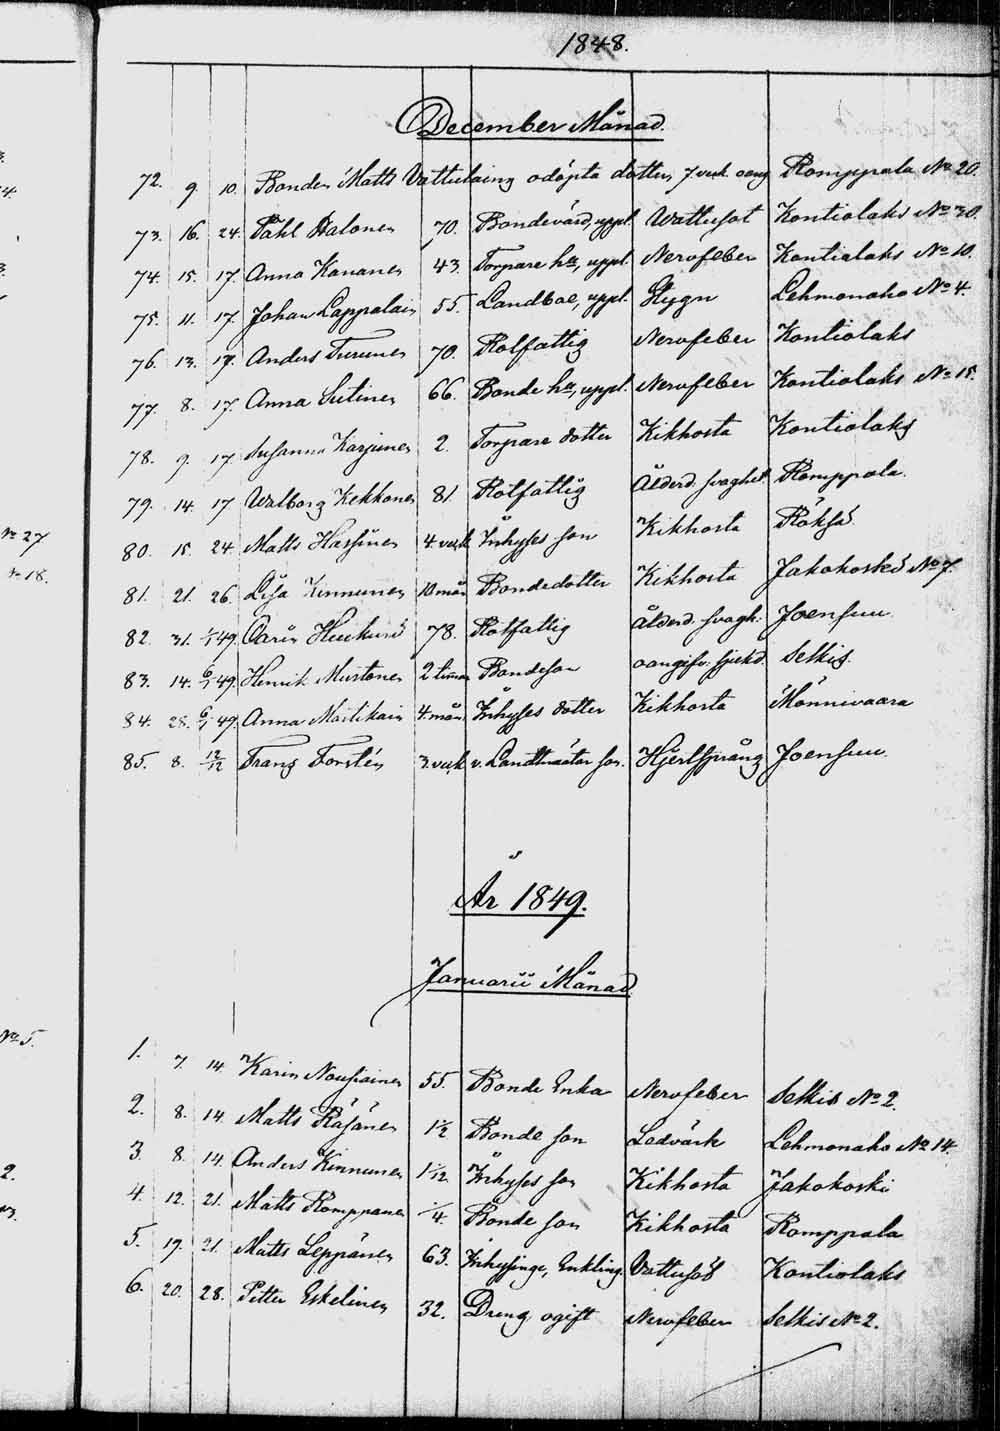 1848.
December Månad.
72. 9. 10. Bonden Matts Vattulaing odöpta dotter, 7. veck. oang Romppala No 20.
73. 16. 24. Påhl Halonen 70. Bondevärd, uppl. Wattusot Kontiolaks No 30.
74. 15. 17. Anna Kananen 43. Torpare ha, uppl. Nervfeber Kontiolaks No 10.
75. 11. 17. Johan Lappalain 55. Landboe, uppl. Stygn Lehmonaho No 4.
76. 13. 17. Anders Turunen 70. Rotfattig Nervfeber Kontiolaks
77. 8. 17. Anna Sutinen 66. Bonde ha, uppl. Nervfeber Kontiolaks No 15.
78. 9. 17. Susanna Karjunen 2. Torpare dotter Kikhosta Kontiolaks
79. 14. 17. Walborg Kekkonen 81. Rotfattig Ålderd. svaghet Romppala.
80. 15. 24. Matts Hassinen 4. veck Inhyses son Kikhosta
81. 21. 26. Lisa Kinnunen 10 mån Bondedotter Kikhosta Jakokoski No 7.
82. 31. 1/1 49. 78. Rotfattig ålderd. svagh. Joensuu.
83. 14. 6/1 49. Henrik Mustonen 2 timar Bondeson oangifv. sjukd. Selkis.
84. 28. 6/1 49. Anna Martikain 4. mån Inhyses dotter Kikhosta Mönnivaara
85. 8. 12/12 Frans Forstén 3. veck v. Landtmätar son. Hjertsprång Joensuu.
År 1849.
Januarii Månad.
1. 7. 14. Karin Nousiainen 55. Bonde Enka Nervfeber Selkis No 2.
2. 8. 14. Matts Räsänen 1 1/2 Bonde son Ledvärk Lehmonaho No 14.
3. 8. 14. Anders Kinnunen 1/12 Inhyses son Kikhosta Jakokoski
4. 12. 21. Matts Romppanen 1/4. Bonde son Kikhosta Romppala
5. 19. 21. Matts Leppänen 63. Inhysinge, Enkling. Vattusot Kontiolaks
6. 20. 28. Petter Eskelinen 32. Dreng ogift Nervfeber Selkis No 2.
No 27
No 18.
No 5.